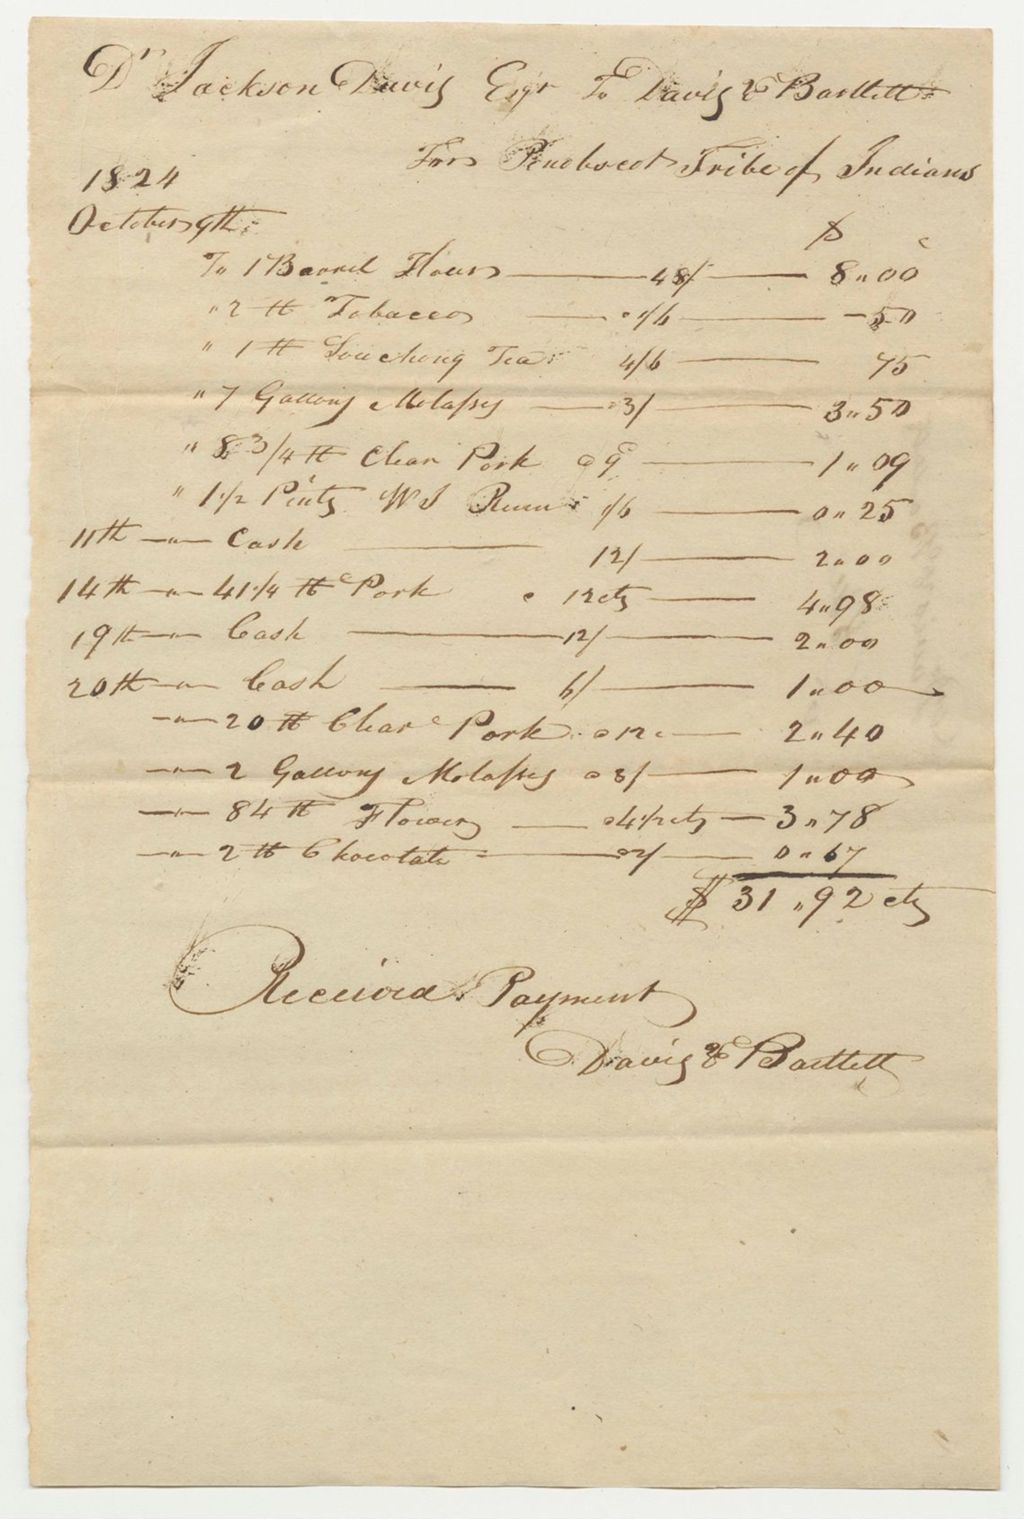 Dr Jackson Davis Esqr To Davis & Bartlett
For Penobscot Tribe of Indians
1824
October 9th
$ c
To 1 Barrel Flour 48/ 8"00
" 2 lb Tobacco @ 1/6 -50
" 1 lb Souchong Tea 4/6 75
" 7 Gallons Molasses @ 3/ 3"50
" 8 3/4 lb Clear Pork @ 9c 1"09
" 1 1/2 Pints W I Rum 1/6 0"25
11th -"- Cash 12/ 2"00
14th -"- 41 1/4 lb Pork @ 12cts 4"98
19th -"- Cash 12/ 2"00
20th -"- Cash 6/ 1"00
-"- 20 lb Clear Pork @ 12c 2"40
-"- 2 Gallons Molasses @ 3/ 1"00
-"- 84 lb Flower @ 4 1/2 cts 3"78
-"- 2 lb Chocolate @ 2/ 0"67
$31"92 cts
Received Payment
Davis & Bartlett